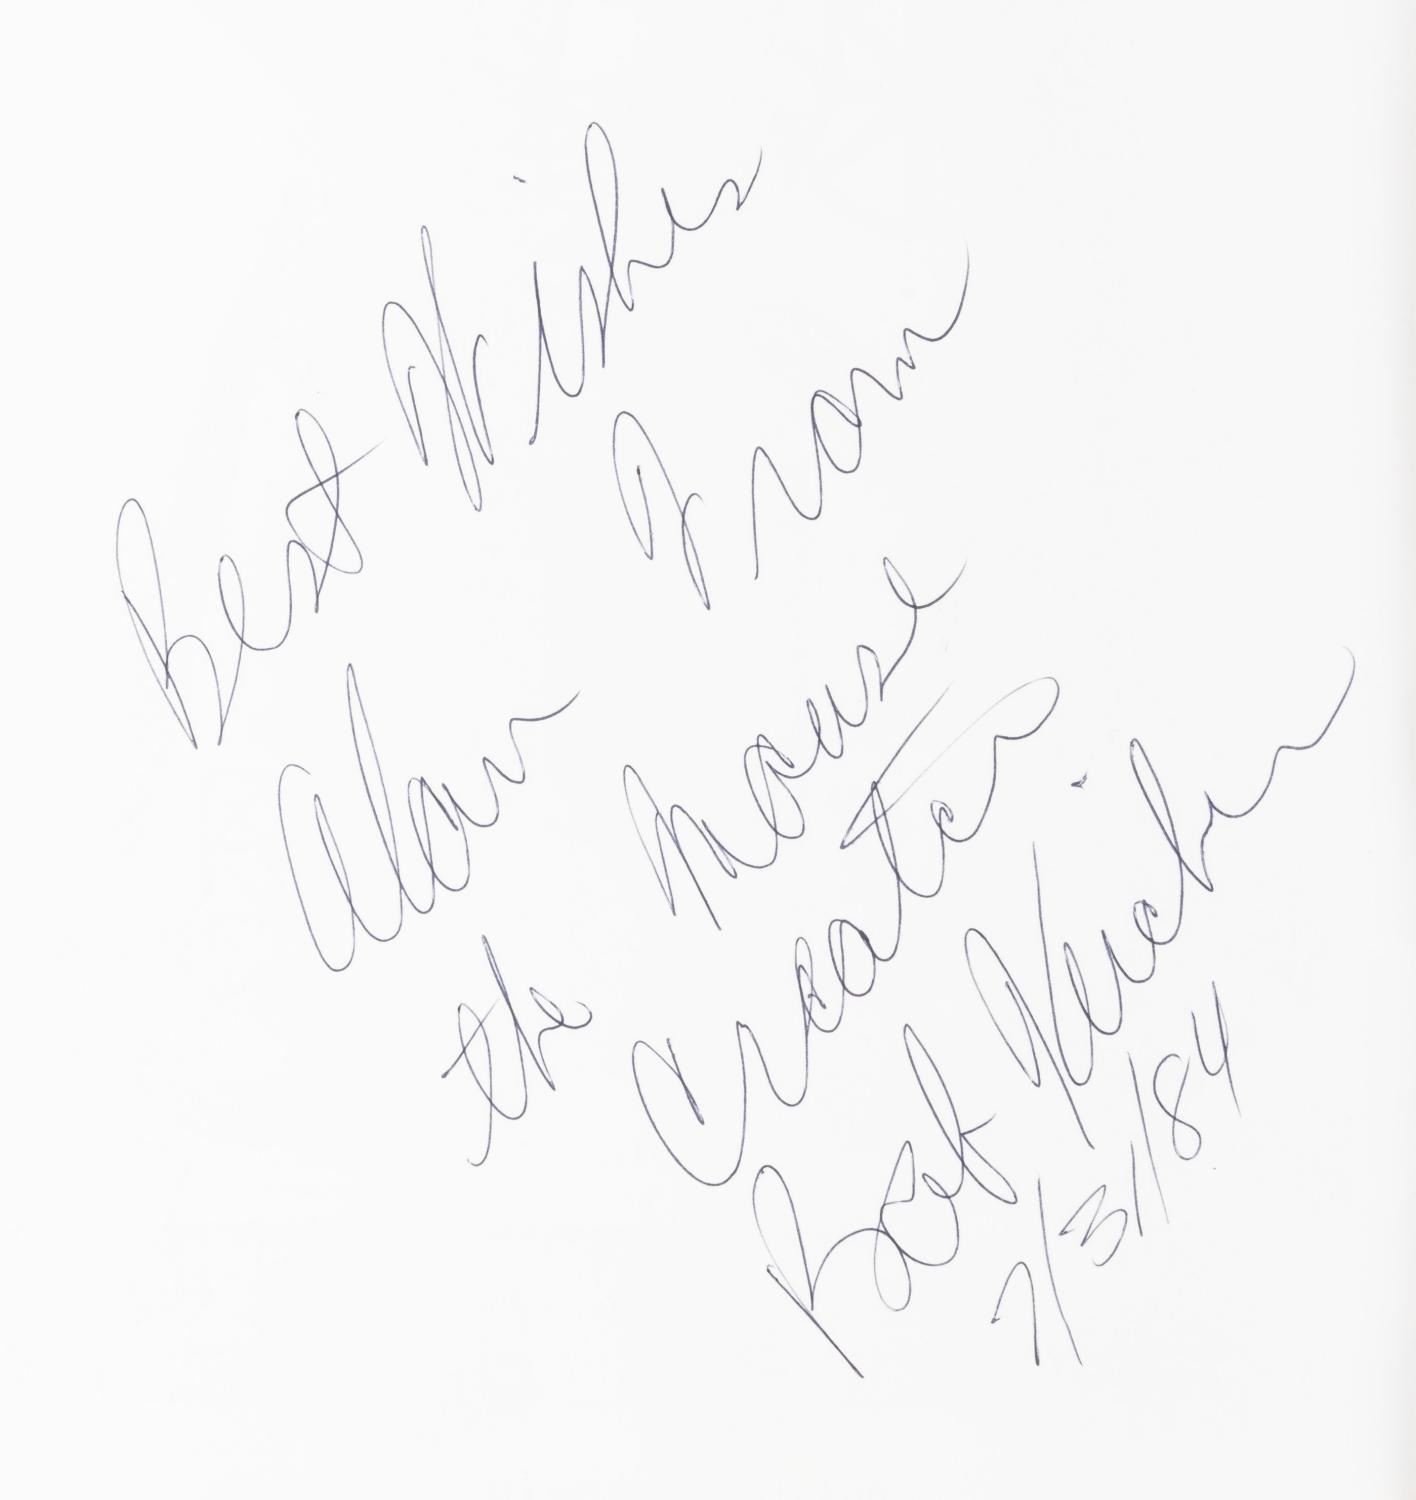 Best Wishes
Alan From
the Mouse
Creator
Bob
7/31/84